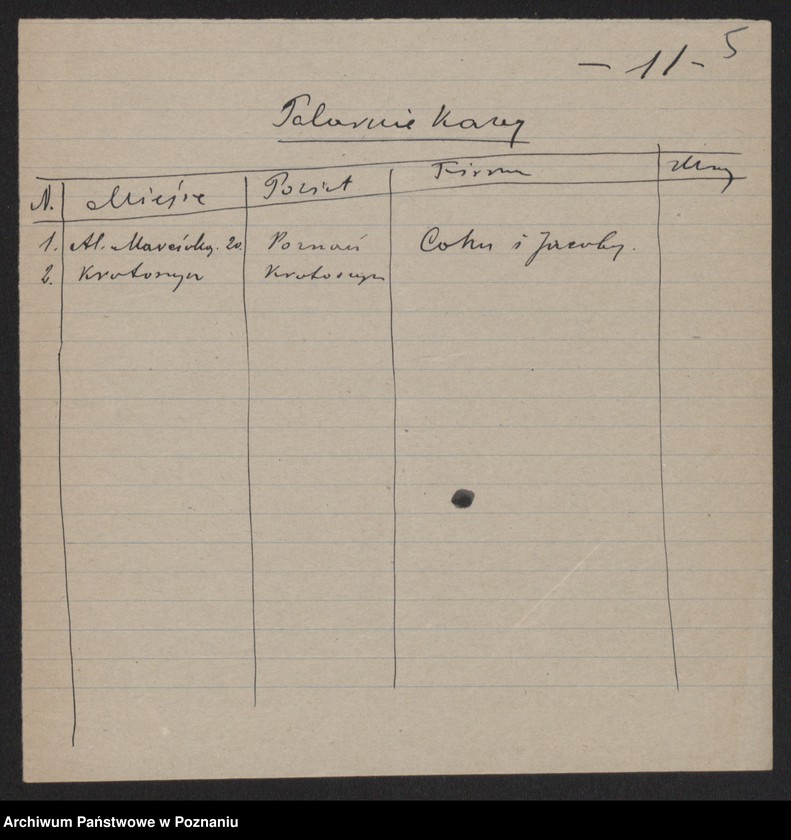 - 11 - 5
Palarnie Kawy
N. Miejsce Powiat Firma Uwagi
1. Al. Marcinkow. 20. Poznań Cohn i Jacoby.
2. Krotoszyn Krotoszyn
Archiwum Państwowe w Poznaniu